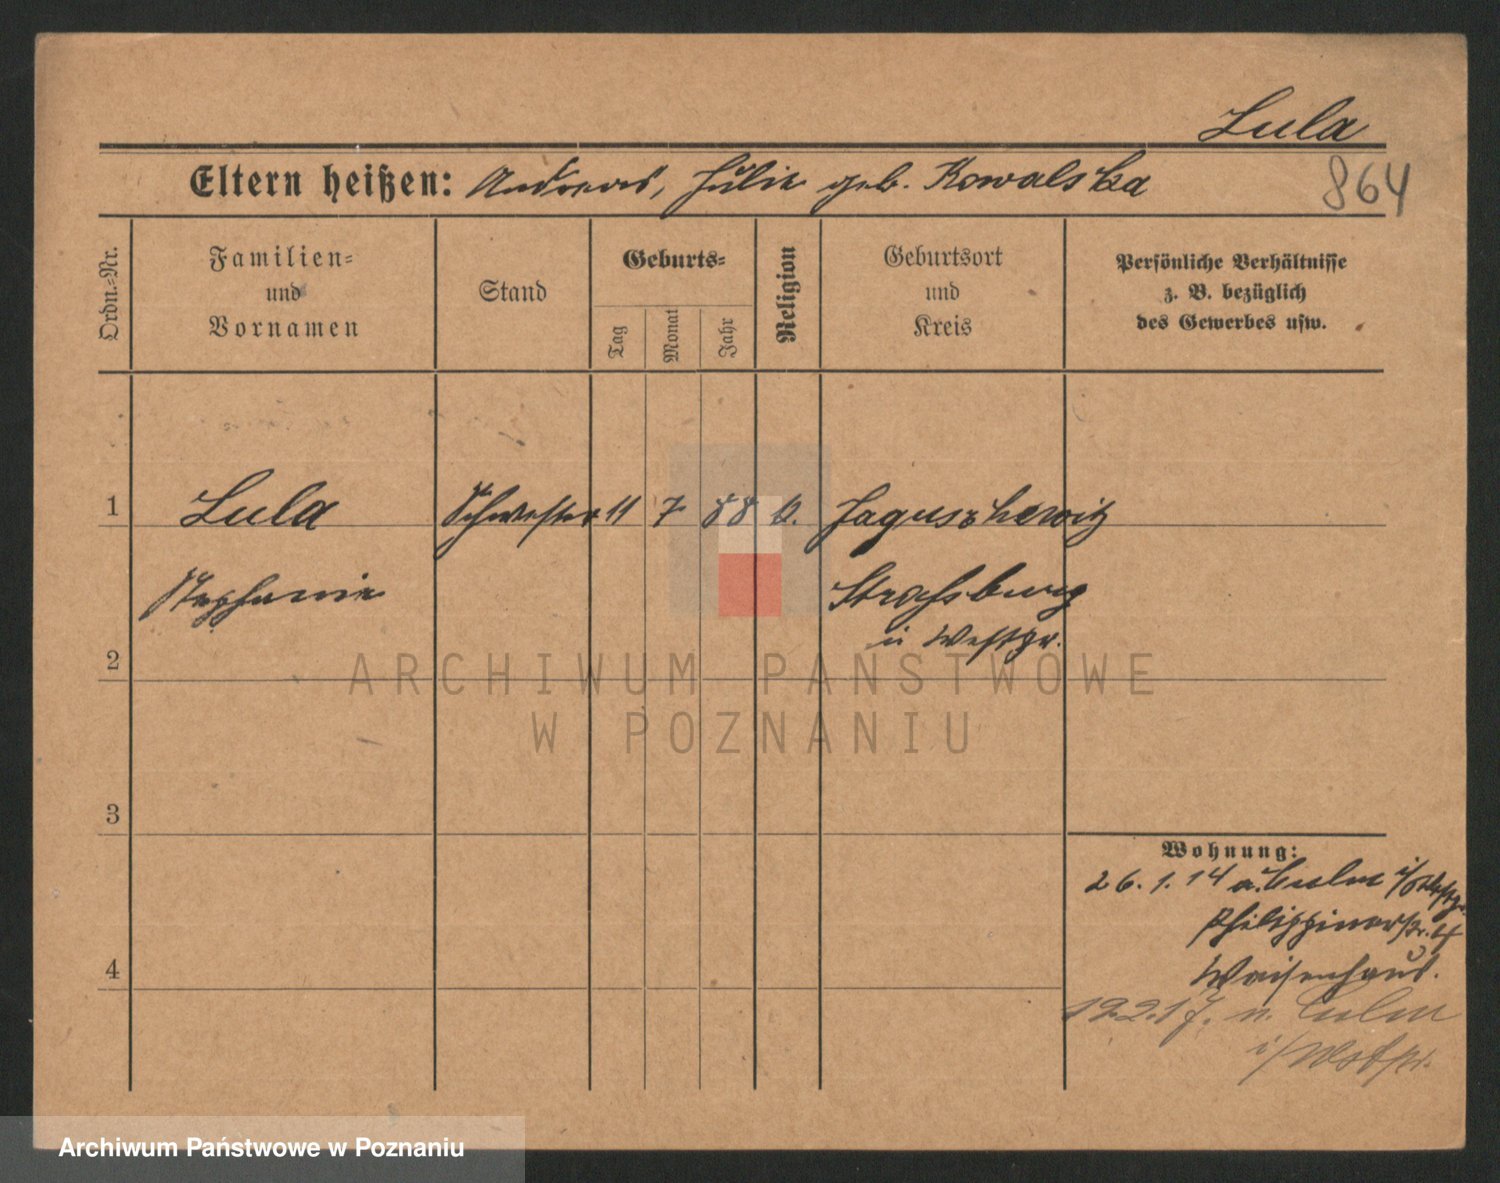 Lula
Eltern heißen: Andreas, Julie geb. Kowalska
864
Ordn.-Nr.
Familien-
und
Vornamen
Stand
Geburts-
Tag
Monat
Jahr
Religion
Geburtsort
und
Kreis
Persönliche Verhältnisse
z. B. bezüglich
des Gewerbes usw.
1 Lula Schwester 11 7 88 k. Jaguszhewitz
Stephanie Strassburg
in Westpr.
2
3
4
Wohnung:
26.1.14 a. Culm i/Westpr.
Philippinerstr. 4
Waisenhaus.
19.2.17. n. Culm
i/Westpr.
ARCHIWUM PAŃSTWOWE
W POZNANIU
Archiwum Państwowe w Poznaniu